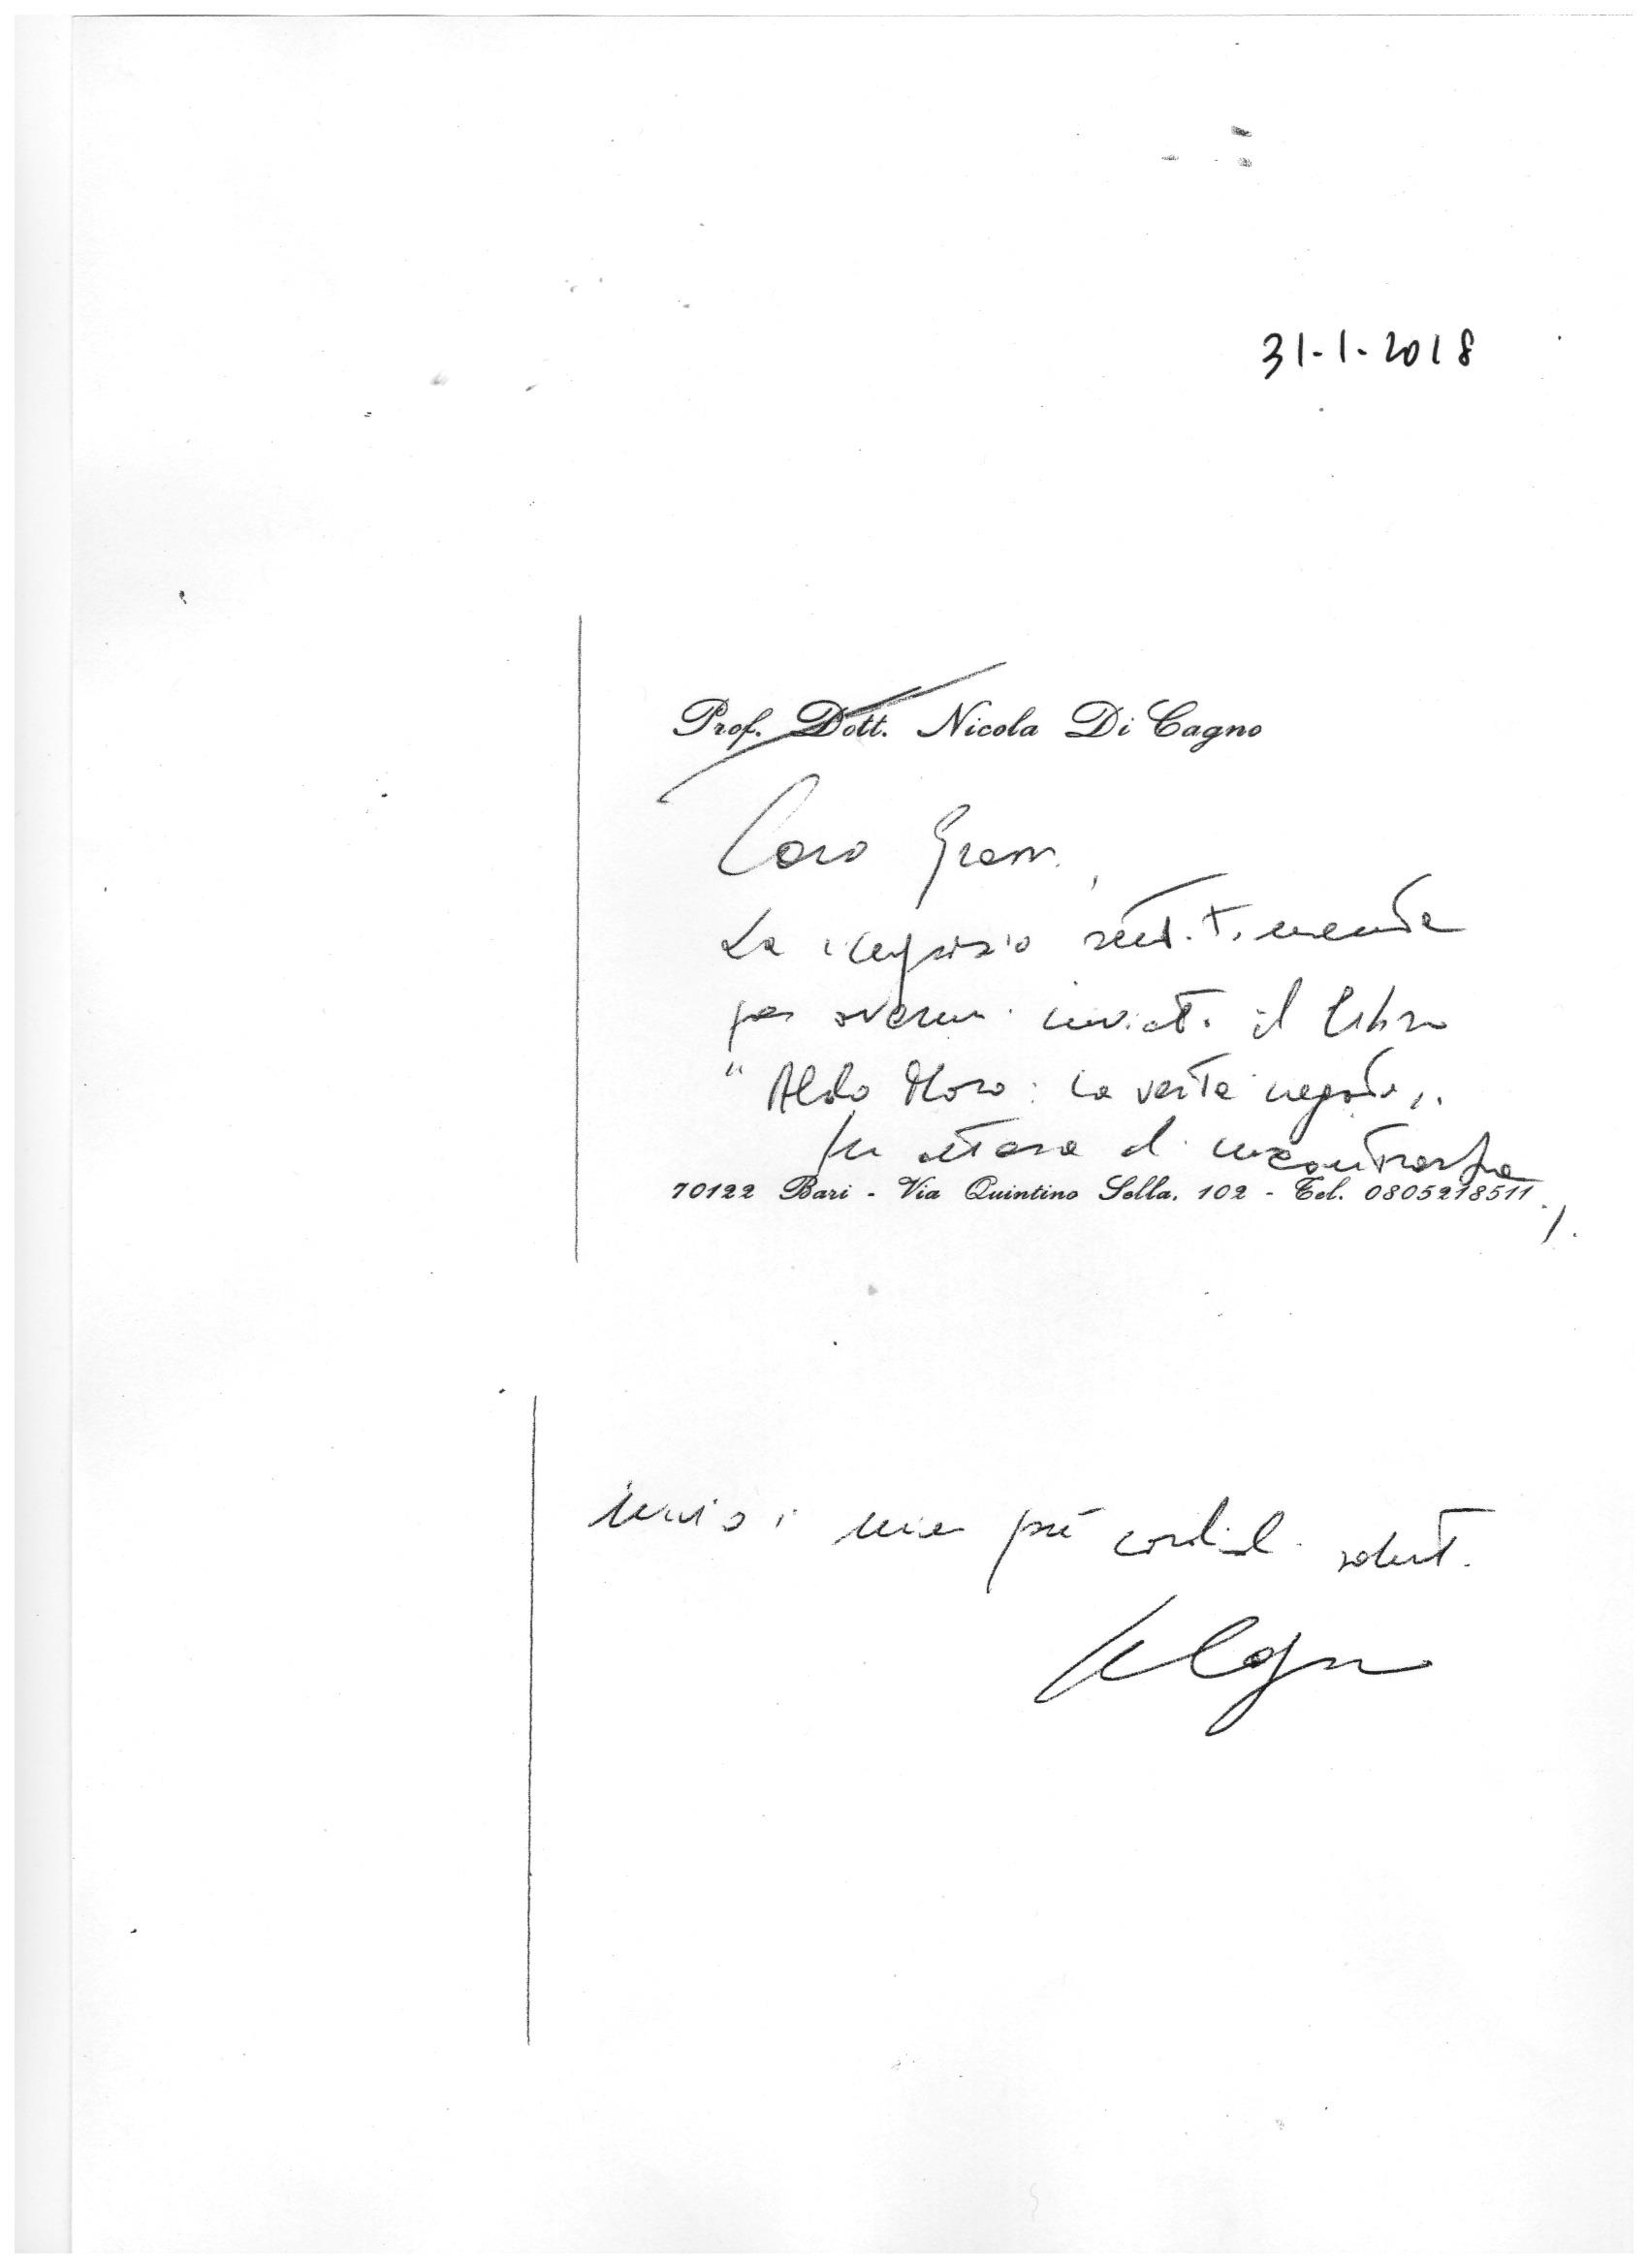 31-1-2018
Prof. Dott. Nicola Di Cagno
Caro Grassi,
La ringrazio sentitamente
per avermi inviato il libro
"Aldo Moro: la verità negata".
In attesa di incontrarla
70122 Bari - Via Quintino Sella, 102 - Tel. 0805218511
./.
invio i miei più cordiali saluti.